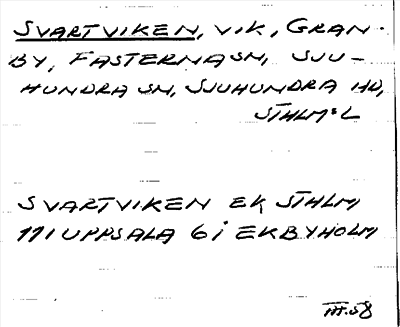 SVARTVIKEN, VIK, GRAN-
BY, FASTERNA SN, SJU-
HUNDRA SN, SJUHUNDRA HD,
STHLMS L
SVARTVIKEN EK STHLM
111 UPPSALA 6 i EKBYHOLM
III.58